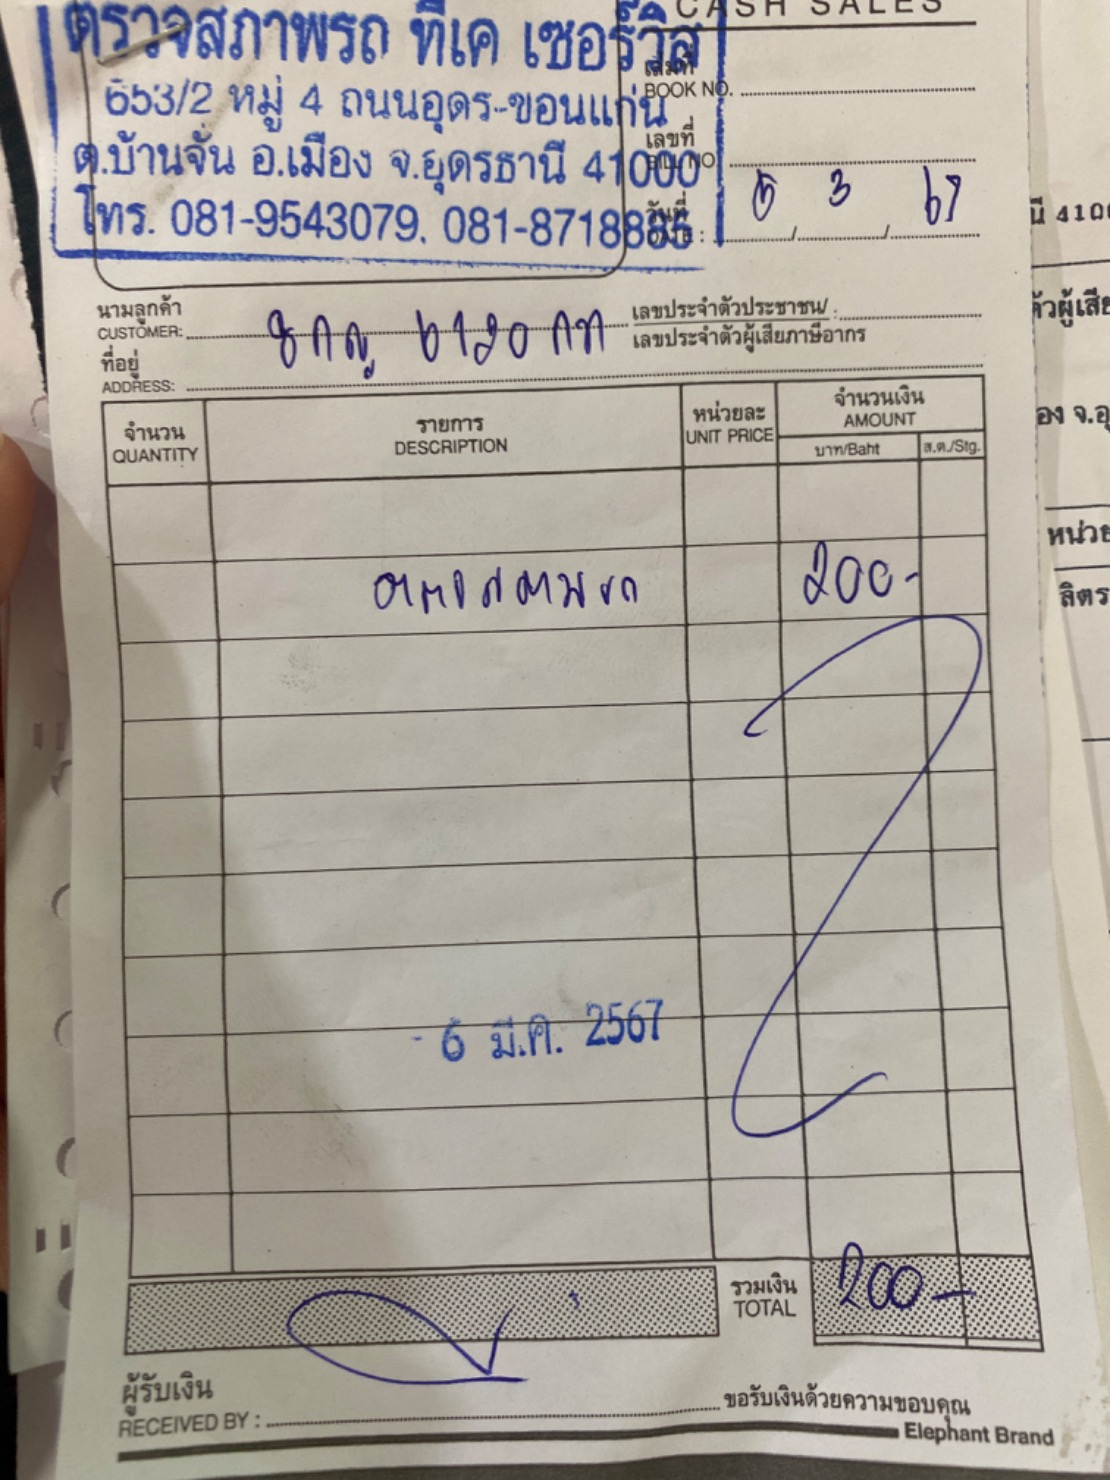 CASH SALES
ตรวจสภาพรถ ทีเค เซอร์วิส
653/2 หมู่ 4 ถนนอุดร-ขอนแก่น
ต.บ้านจั่น อ.เมือง จ.อุดรธานี 41000
โทร. 081-9543079, 081-8718886
เล่มที่
BOOK NO.
เลขที่
BILL NO
วันที่
DATE : / /
3 67
นามลูกค้า
CUSTOMER:
6120 กท
เลขประจำตัวประชาชน/ :
เลขประจำตัวผู้เสียภาษีอากร
ที่อยู่
ADDRESS:
จำนวน
QUANTITY
รายการ
DESCRIPTION
หน่วยละ
UNIT PRICE
จำนวนเงิน
AMOUNT
บาท/Baht
ส.ต./Stg.
ตรวจสภาพรถ 200-
- 6 มี.ค. 2567
รวมเงิน
TOTAL
200-
ผู้รับเงิน
RECEIVED BY :
ขอรับเงินด้วยความขอบคุณ
Elephant Brand
นี 4100
ตัวผู้เสีย
อง จ.อุ
หน่วย
ลิตร